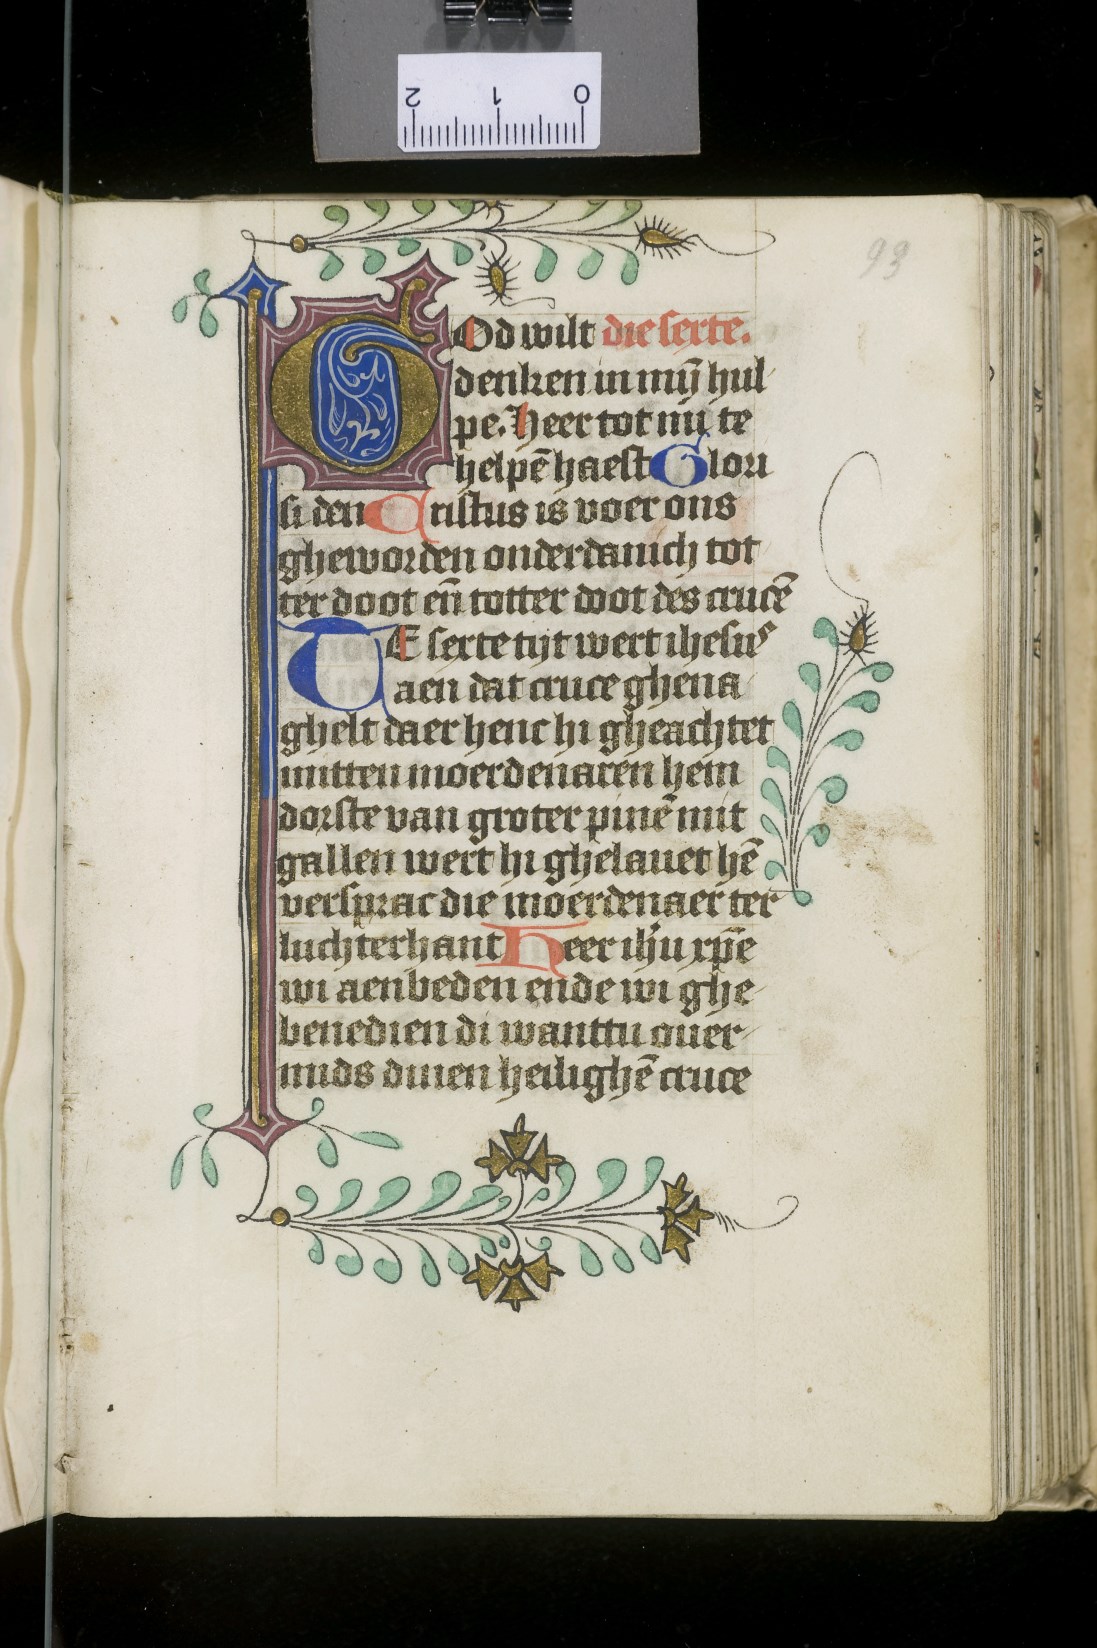 2 1 0
93
GOd wilt die sexte.
denken in mӯ hul
pe. Heer tot mi te
helpē haest Glori
si den Cristus is voer ons
gheworden onderdanich tot
ter doot eñ totter doot des crucē
TE sexte tijt wert ihesus
aen dat cruce ghena
ghelt daer henc hi gheachtet
mitten moerdenaren hem
dorste van groter pinē mit
gallen wert hi ghelauet hē
versprac die moerdenaer ter
luchterhant Heer ihu xp̄e
wi aenbeden ende wi ghe
benedien di wanttu ouer
mids dinen heilighē cruce